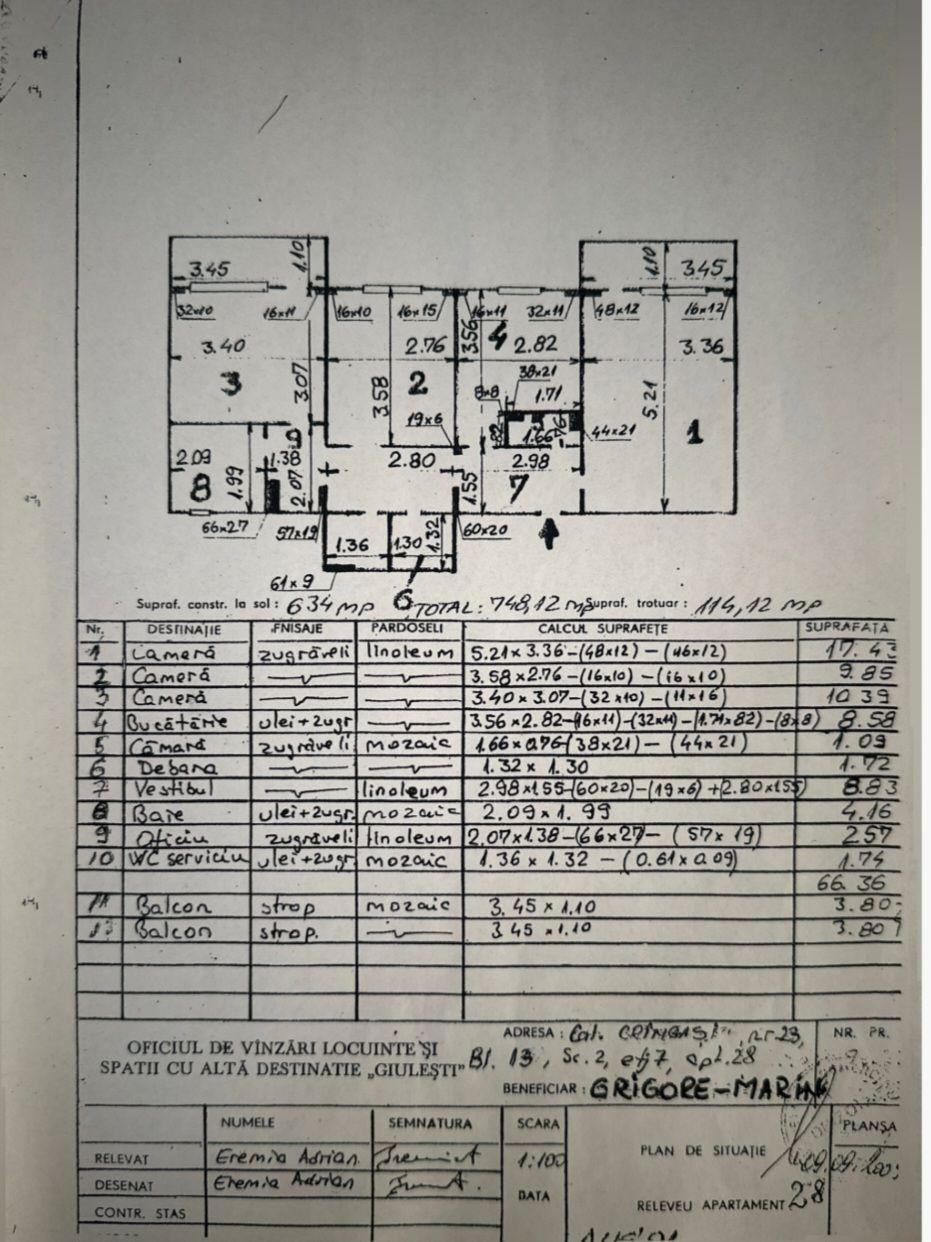 1.10
1.10
3.45
3.45
32x10
16x11
16x10
16x15
16x11
32x11
48x12
16x12
3.40
2.76
3.56
4
2.82
3.36
3
3.07
3.58
2
38x21
8x8
1.71
5.21
19x6
82
1.66
76
44x21
1
2.09
1.38
2.80
2.98
8
1.99
2.07
1.55
7
66x27
57x19
1.36
1.30
1.32
60x20
61x9
6
Supraf. constr. la sol: 634 mp TOTAL: 748,12 mp Supraf. trotuar: 114,12 mp
Nr. DESTINAȚIE FNISAJE PARDOSELI CALCUL SUPRAFEȚE SUPRAFAȚA
1 Cameră zugrăveli linoleum 5.21x3.36-(48x12)-(16x12) 17.43
2 Cameră 3.58x2.76-(16x10)-(16x10) 9.85
3 Cameră 3.40x3.07-(32x10)-(11x16) 10 39
4 Bucătărie ulei+zugr 3.56x2.82-(16x11)-(32x11)-(1.71x82)-(8x8) 8.58
5 Cămară zugrăveli mozaic 1.66x0.76-(38x21)-(44x21) 1.09
6 Debara 1.32x1.30 1.72
7 Vestibul linoleum 2.98x1.55-(60x20)-(19x6)+(2.80x1.55) 8.83
8 Baie ulei+zugr. mozaic 2.09x1.99 4.16
9 Oficiu zugrăveli linoleum 2.07x1.38-(66x27)-(57x19) 2.57
10 WC serviciu ulei+zugr mozaic 1.36x1.32-(0.61x0.09) 1.74
66.36
Balcon strop mozaic 3.45x1.10 3.80
Balcon strop. 3 45x1.10 3.80
OFICIUL DE VÎNZĂRI LOCUINTE ȘI
SPATII CU ALTĂ DESTINATIE „GIULEȘTI”
ADRESA: Cal. CRÎNGAȘI, nr. 23,
Bl. 13, Sc. 2, et 7, apt. 28
BENEFICIAR: GRIGORE-MARIN
NR. PR.
NUMELE SEMNATURA SCARA
RELEVAT Eremia Adrian 1:100
DESENAT Eremia Adrian
DATA
CONTR. STAS
PLAN DE SITUAȚIE
RELEVEU APARTAMENT 28
PLANȘA